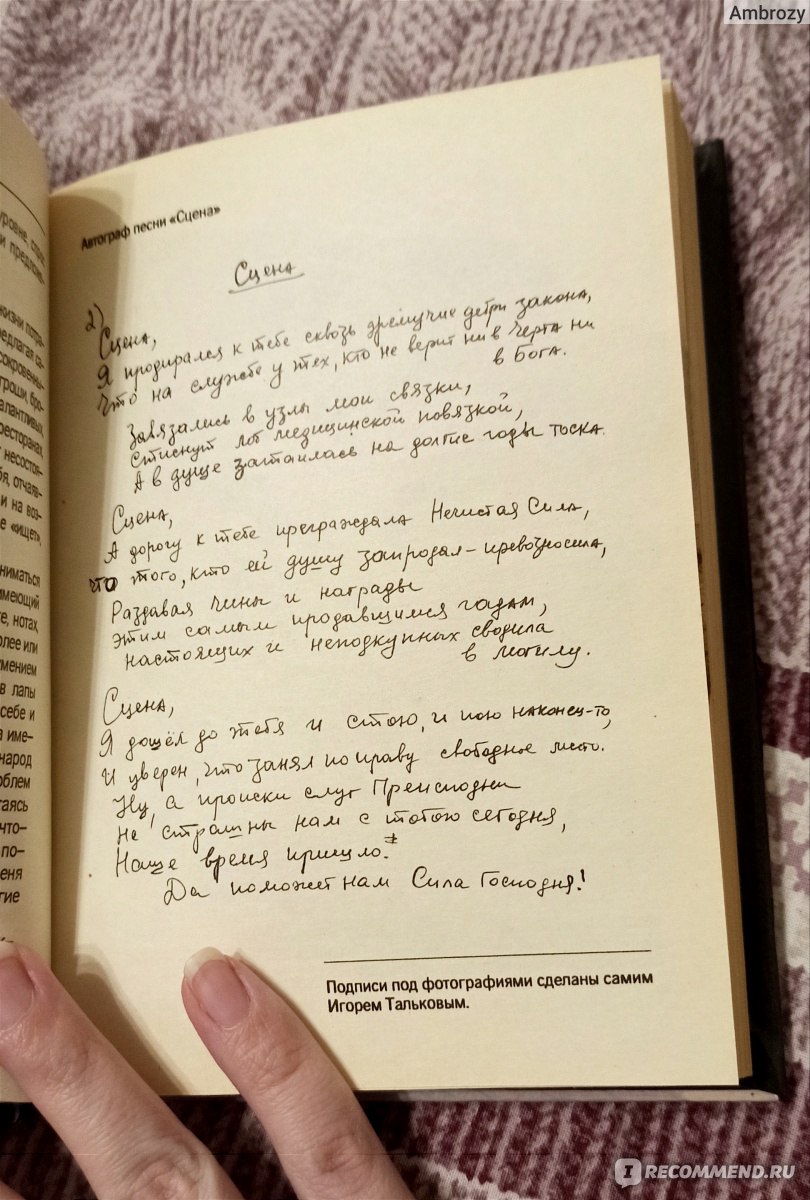 Ambrozy
уровне,
и предлож-
жизни потра-
предлагая са-
сокровенны-
гроши, бро-
талантливых,
ресторанах,
несостоя-
бя, отчаяв-
и на воз-
е «ищет»,
ниматься
имеющий
те, нотах,
олее или
умением
в лапы
себе и
а име-
народ
облем
гаясь
что-
по-
еня
гие
Автограф песни «Сцена»
Сцена
2)
Сцена,
Я продирался к тебе сквозь дремучие дебри закона,
Что на службе у тех, кто не верит ни в Черта ни
в Бога.
Завязались в узлы мои связки,
Стиснут лоб медицинской повязкой,
А в душе затаилась на долгие годы тоска.
Сцена,
А дорогу к тебе преграждала Нечистая Сила,
что того, кто ей душу запродал – превозносила,
Раздавая чины и награды
Этим самым продавшимся гадам,
Настоящих и неподкупных сводила
в могилу.
Сцена,
Я дошёл до тебя и стою, и пою наконец-то,
И уверен, что занял по праву свободное место.
Ну, а происки слуг Преисподни
Не страшны нам с тобою сегодня,
Наше время пришло.
Да поможет нам Сила Господня!
Подписи под фотографиями сделаны самим
Игорем Тальковым.
IRECOMMEND.RU